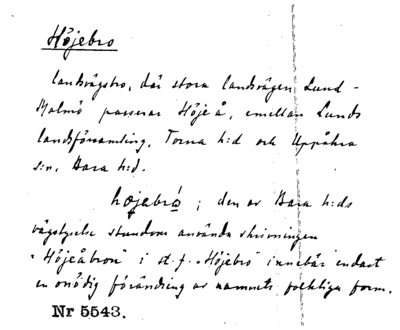 Höjebro
landsvägsbro, där stora landsvägen Lund-
Malmö passerar Höje å, emellan Lunds
landsförsamling, Torna h:d och Uppåkra
s:n, Bara h:d.
hœjebró; den av Bara h:ds
vägstyrelse stundom använda skrivningen
"Höjeåbron" i st. f. "Höjebro" innebär endast
en onödig förändring av namnets folkliga form.
Nr 5543.